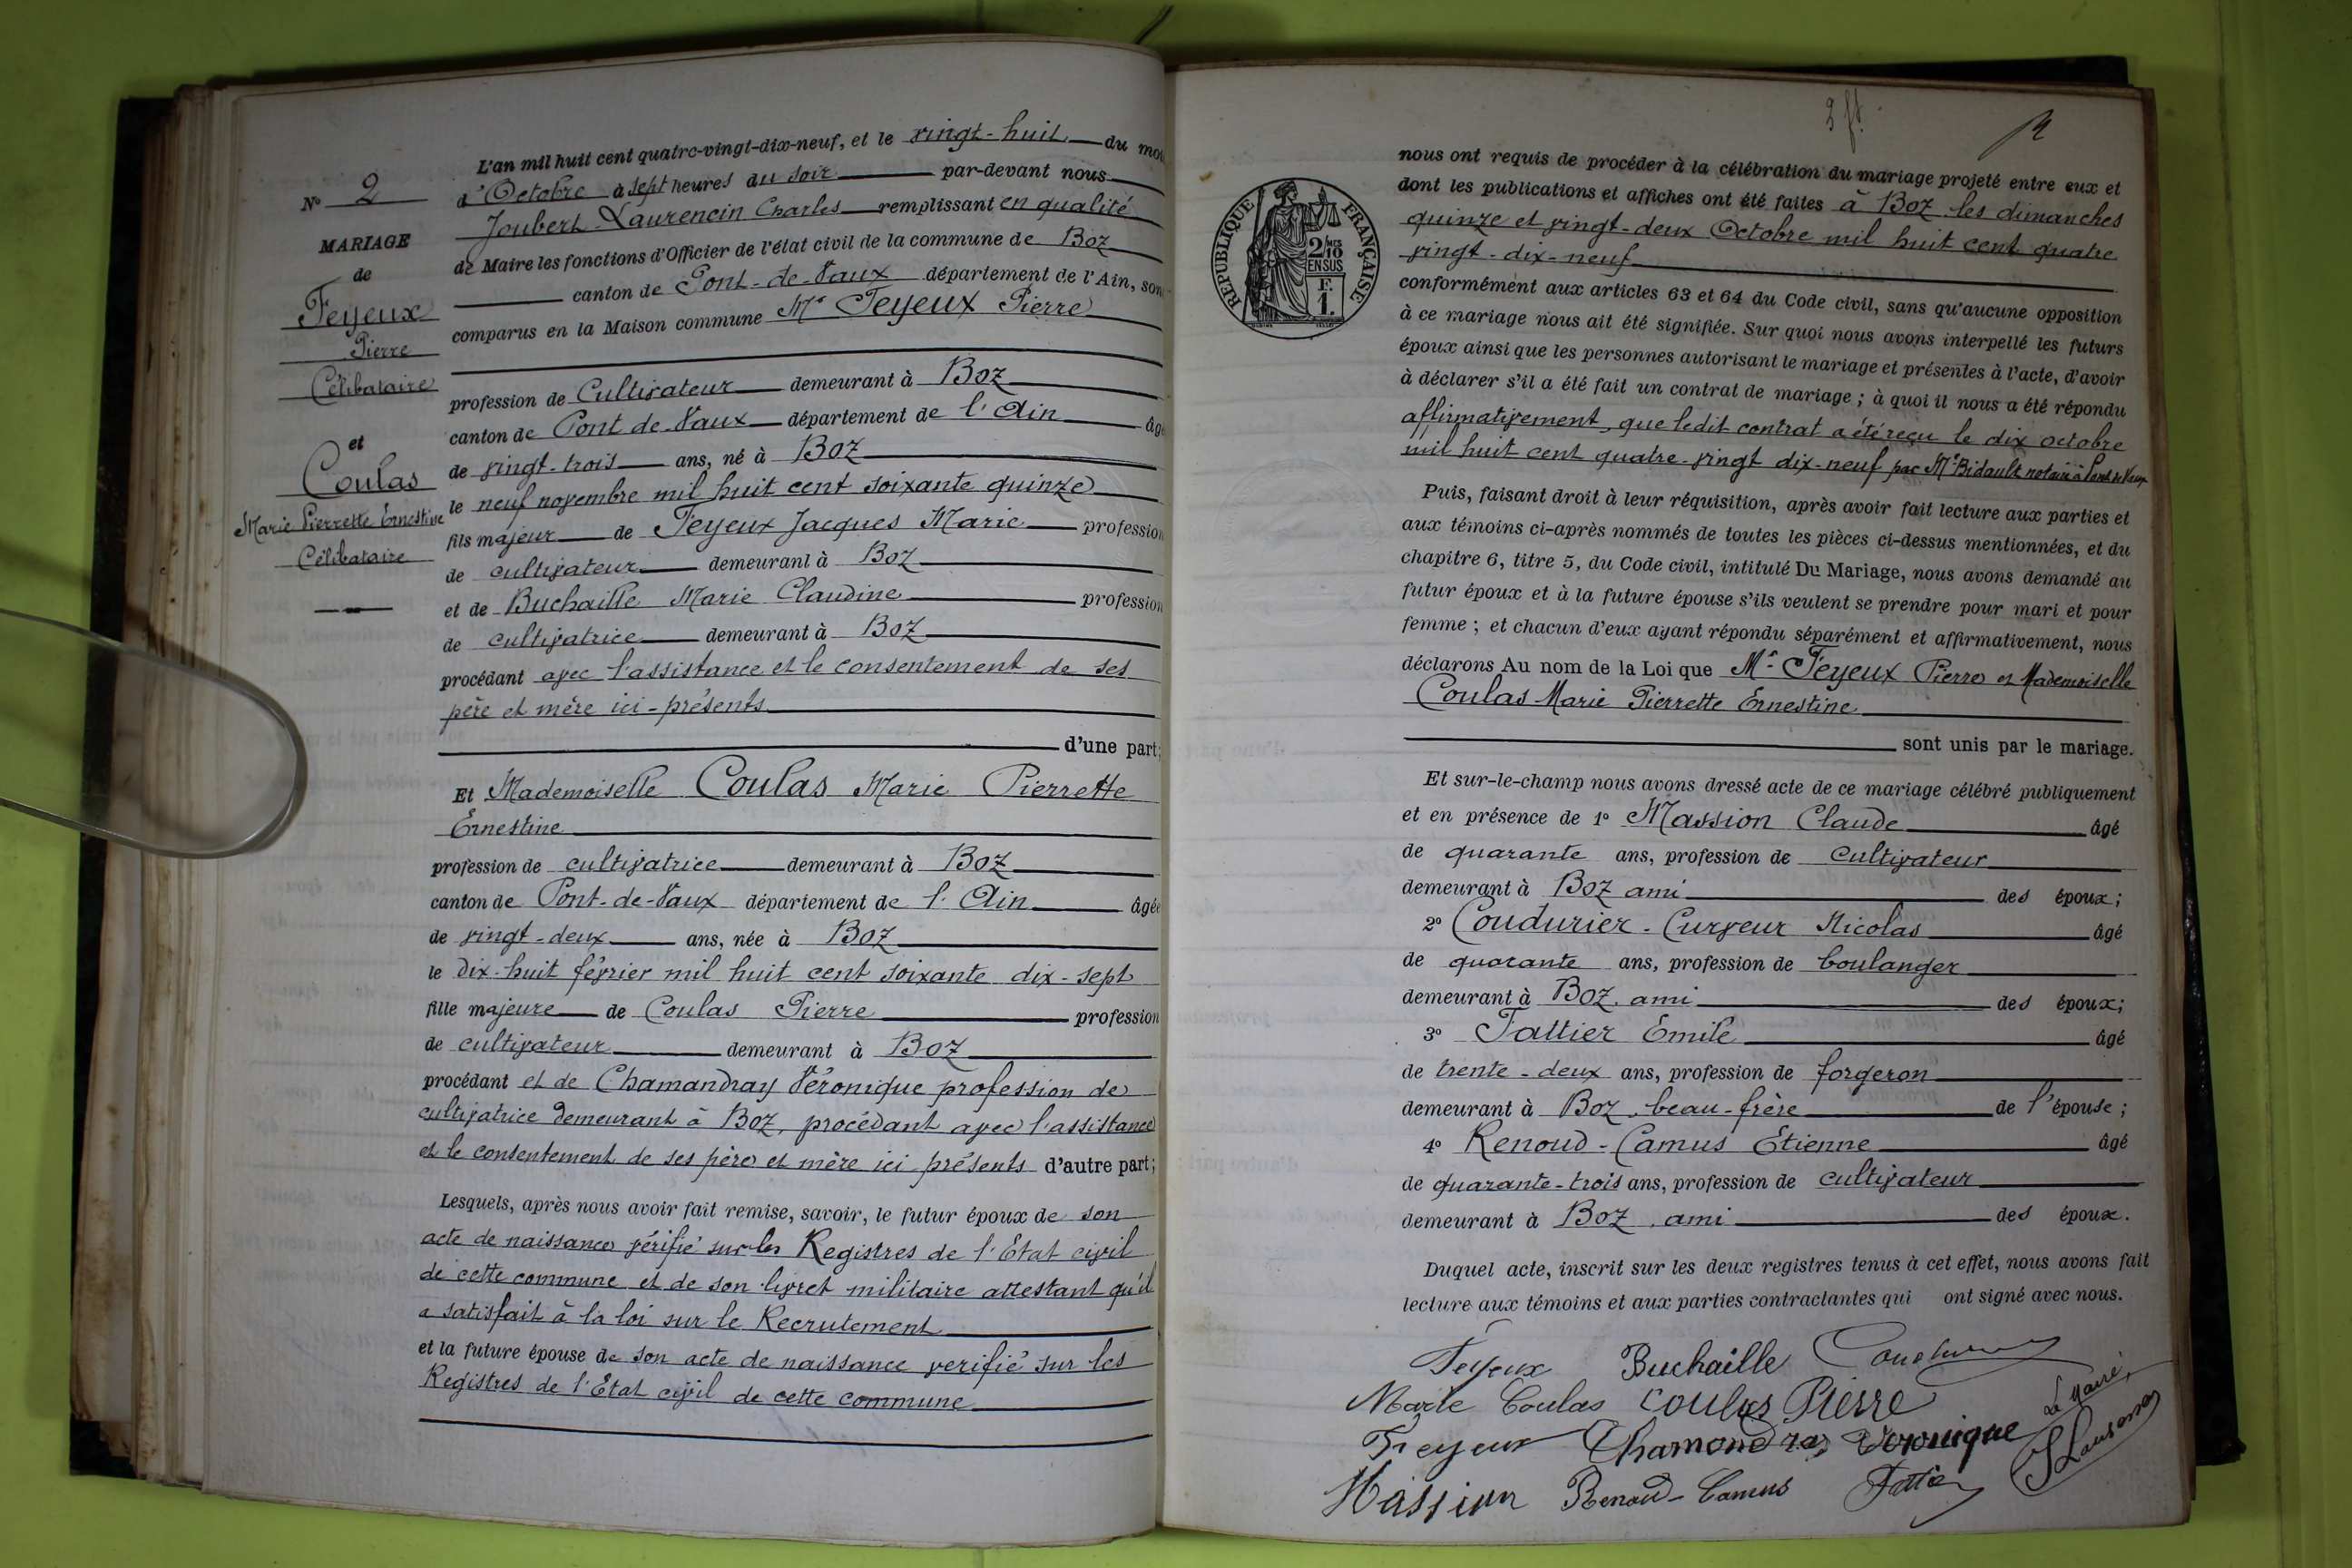 N° 2
MARIAGE
de
Feyeux
Pierre
Célibataire
et
Coulas
Marie Pierrette Ernestine
Célibataire
L'an mil huit cent quatre-vingt-dix-neuf, et le vingt-huit du moi
d'Octobre à sept heures du soir par-devant nous
Joubert Laurencin Charles remplissant en qualité
de Maire les fonctions d'Officier de l'état civil de la commune de Boz
canton de Pont-de-Vaux département de l'Ain, son
comparus en la Maison commune Mr Feyeux Pierre
profession de Cultivateur demeurant à Boz
canton de Pont de Vaux département de l'Ain âgé
de vingt-trois ans, né à Boz
le neuf novembre mil huit cent soixante quinze
fils majeur de Feyeux Jacques Marie profession
de cultivateur demeurant à Boz
et de Buchaille Marie Claudine profession
de cultivatrice demeurant à Boz
procédant avec l'assistance et le consentement de ses
père et mère ici-présents
d'une part;
Et Mademoiselle Coulas Marie Pierrette
Ernestine
profession de cultivatrice demeurant à Boz
canton de Pont-de-Vaux département de l'Ain âgée
de vingt-deux ans, née à Boz
le dix-huit février mil huit cent soixante dix-sept
fille majeure de Coulas Pierre profession
de cultivateur demeurant à Boz
procédant et de Chamandray Véronique profession de
cultivatrice demeurant à Boz, procédant avec l'assistance
et le consentement de ses père et mère ici présents d'autre part;
Lesquels, après nous avoir fait remise, savoir, le futur époux de son
acte de naissance vérifié sur les Registres de l'Etat civil
de cette commune et de son livret militaire attestant qu'il
a satisfait à la loi sur le Recrutement
et la future épouse de son acte de naissance verifié sur les
Registres de l'Etat civil de cette commune
RÉPUBLIQUE FRANÇAISE
2/10 MES
EN SUS
F.
1.
nous ont requis de procéder à la célébration du mariage projeté entre eux et
dont les publications et affiches ont été faites à Boz les dimanches
quinze et vingt-deux Octobre mil huit cent quatre
vingt-dix-neuf
conformément aux articles 63 et 64 du Code civil, sans qu'aucune opposition
à ce mariage nous ait été signifiée. Sur quoi nous avons interpellé les futurs
époux ainsi que les personnes autorisant le mariage et présentes à l'acte, d'avoir
à déclarer s'il a été fait un contrat de mariage; à quoi il nous a été répondu
affirmativement, que ledit contrat a été reçu le dix octobre
mil huit cent quatre-vingt dix-neuf par Me Bidault notaire à Pont de Vaux
Puis, faisant droit à leur réquisition, après avoir fait lecture aux parties et
aux témoins ci-après nommés de toutes les pièces ci-dessus mentionnées, et du
chapitre 6, titre 5, du Code civil, intitulé Du Mariage, nous avons demandé au
futur époux et à la future épouse s'ils veulent se prendre pour mari et pour
femme; et chacun d'eux ayant répondu séparément et affirmativement, nous
déclarons Au nom de la Loi que Mr Feyeux Pierre et Mademoiselle
Coulas Marie Pierrette Ernestine
sont unis par le mariage.
Et sur-le-champ nous avons dressé acte de ce mariage célébré publiquement
et en présence de 1° Massion Claude âgé
de quarante ans, profession de cultivateur
demeurant à Boz ami des époux;
2° Coudurier-Curveur Nicolas âgé
de quarante ans, profession de boulanger
demeurant à Boz. ami des époux;
3° Fattier Emile âgé
de trente-deux ans, profession de forgeron
demeurant à Boz, beau-frère de l'épouse;
4° Renoud-Camus Etienne âgé
de quarante-trois ans, profession de cultivateur
demeurant à Boz, ami des époux.
Duquel acte, inscrit sur les deux registres tenus à cet effet, nous avons fait
lecture aux témoins et aux parties contractantes qui ont signé avec nous.
Feyeux Buchaille
Marie Coulas Coulas Pierre Le Maire,
Feyeux Chamandray Veronique
Massion Renoud-Camus